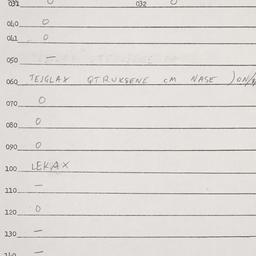 031 0 032 0
040 0
041 0
050 —
060 TEJGLAX QTRUKSENE CM NASE
070 0
080 0
090 0
100 LEKAX
110 —
120 0
130 —
140 —